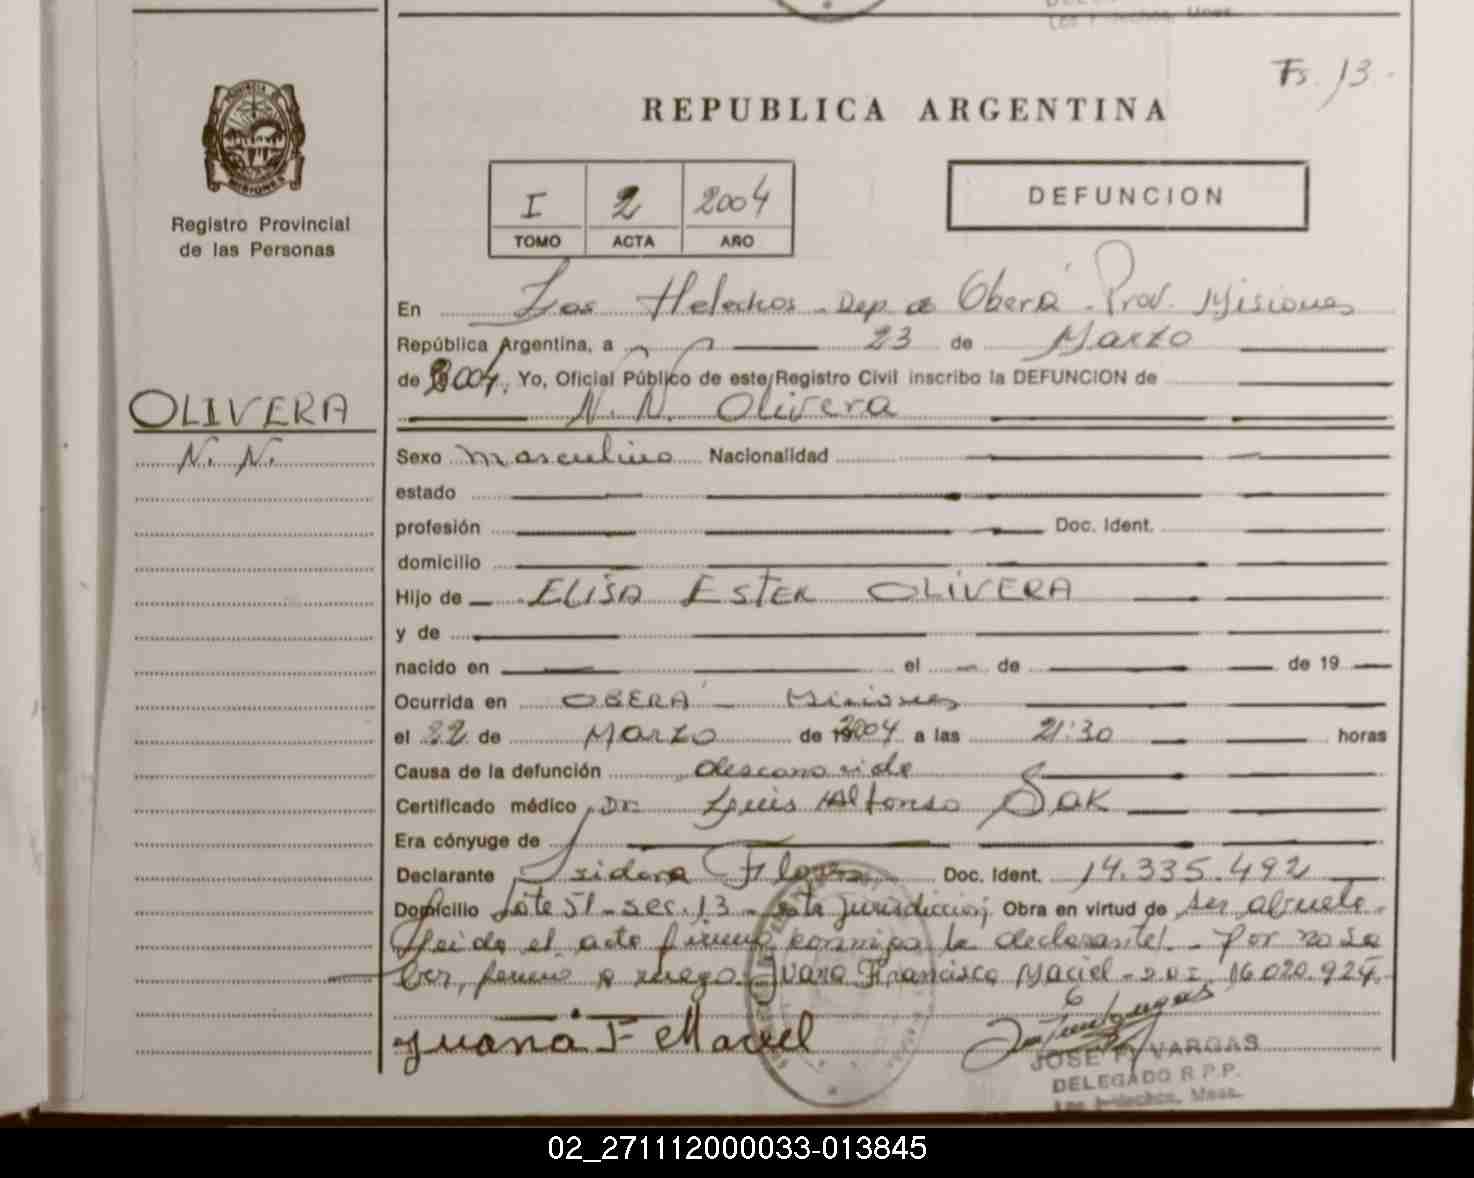 Fs. 13.
REPUBLICA ARGENTINA
PROVINCIA DE
MISIONES
Registro Provincial
de las Personas
I 2 2004
TOMO ACTA AÑO
DEFUNCION
En Los Helechos - Dep. de Oberá - Prov. Misiones
República Argentina, a 23 de Marzo
de 2004. Yo, Oficial Público de este Registro Civil inscribo la DEFUNCION de
OLIVERA
N. N. Olivera
N. N.
Sexo masculino Nacionalidad
estado
profesión Doc. Ident.
domicilio
Hijo de ELISA ESTER OLIVERA
y de
nacido en el de de 19
Ocurrida en OBERA - Misiones
el 22 de Marzo de 2004 a las 21:30 horas
Causa de la defunción desconocida
Certificado médico Dr. Luis Alfonso Sak
Era cónyuge de
Declarante Isidora Flores Doc. Ident. 14.335.492
Domicilio Lote 51 - sec. 13 - esta jurisdiccion; Obra en virtud de ser abuela.
Leida el acta firma conmigo la declarante. - Por no sa
ber, firma a ruego Juana Francisca Maciel - D.N.I. 16.020.924.
6
Juana F Maciel
JOSE F. VARGAS
DELEGADO R.P.P.
Los Helechos, Mnes.
02_271112000033-013845